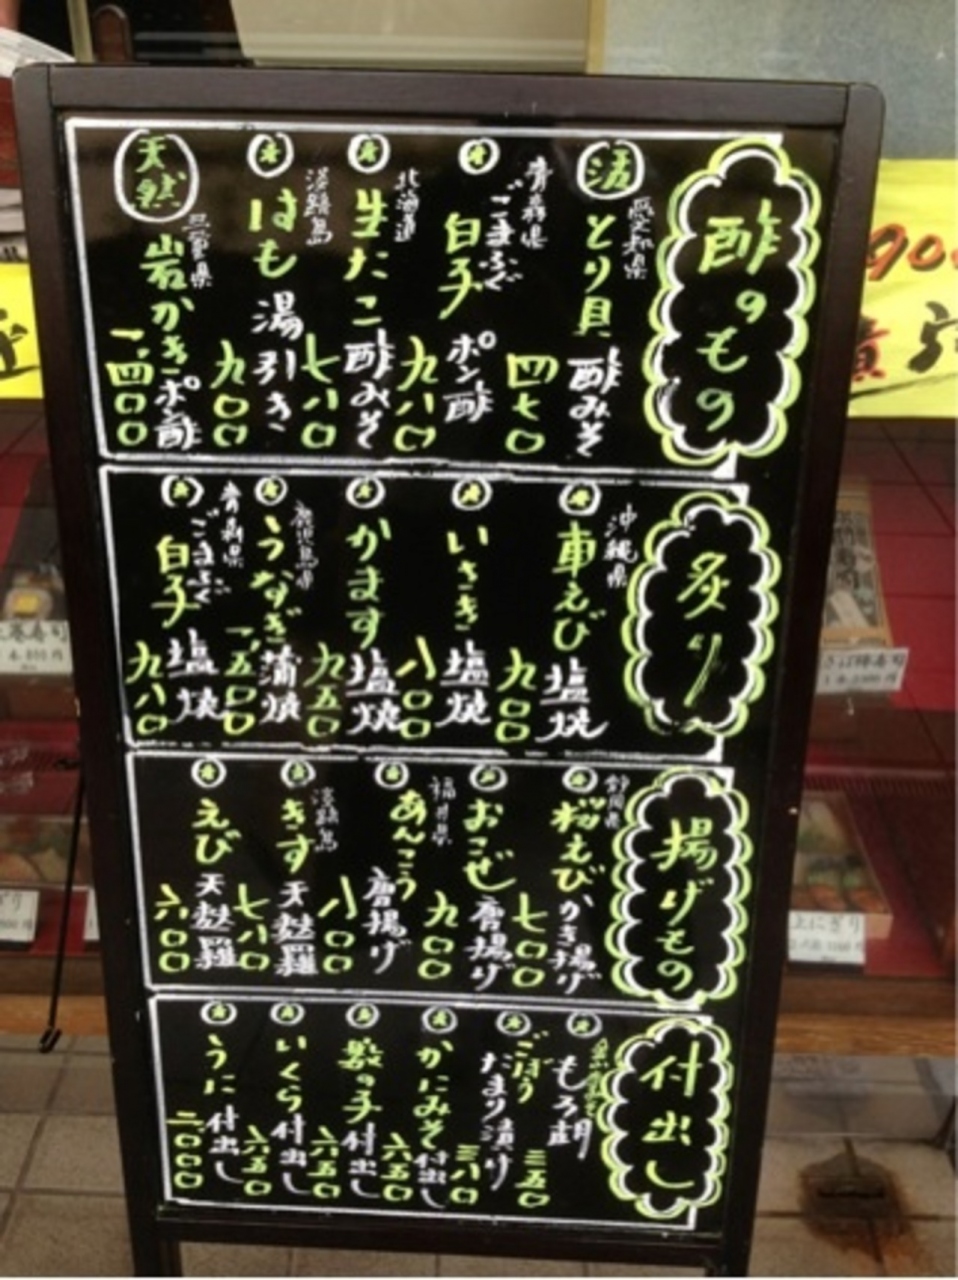 酢のもの
活 愛知県 とり貝 酢みそ 四七〇
青森県 ごまふぐ 白子 ポン酢 九八〇
北海道 生たこ 酢みそ 七八〇
淡路島 はも 湯引き 九〇〇
天然 三重県 岩かき ポン酢 一、四〇〇
炙り
沖縄県 車えび 塩焼 九〇〇
いさき 塩焼 八〇〇
かます 塩焼 九五〇
鹿児島県 うなぎ 蒲焼 一、五〇〇
青森県 ごまふぐ 白子 塩焼 九八〇
揚げもの
静岡県 桜えび かき揚げ 七〇〇
おこぜ 唐揚げ 九〇〇
福井県 あんこう 唐揚げ 八〇〇
淡路島 きす 天麩羅 七八〇
えび 天麩羅 六〇〇
付出し
もろ胡 三五〇
ごぼう たまり漬け 三八〇
かにみそ 付出し 六五〇
数の子 付出し 六五〇
いくら 付出し 六五〇
うに 付出し 二、〇〇〇
上にぎり